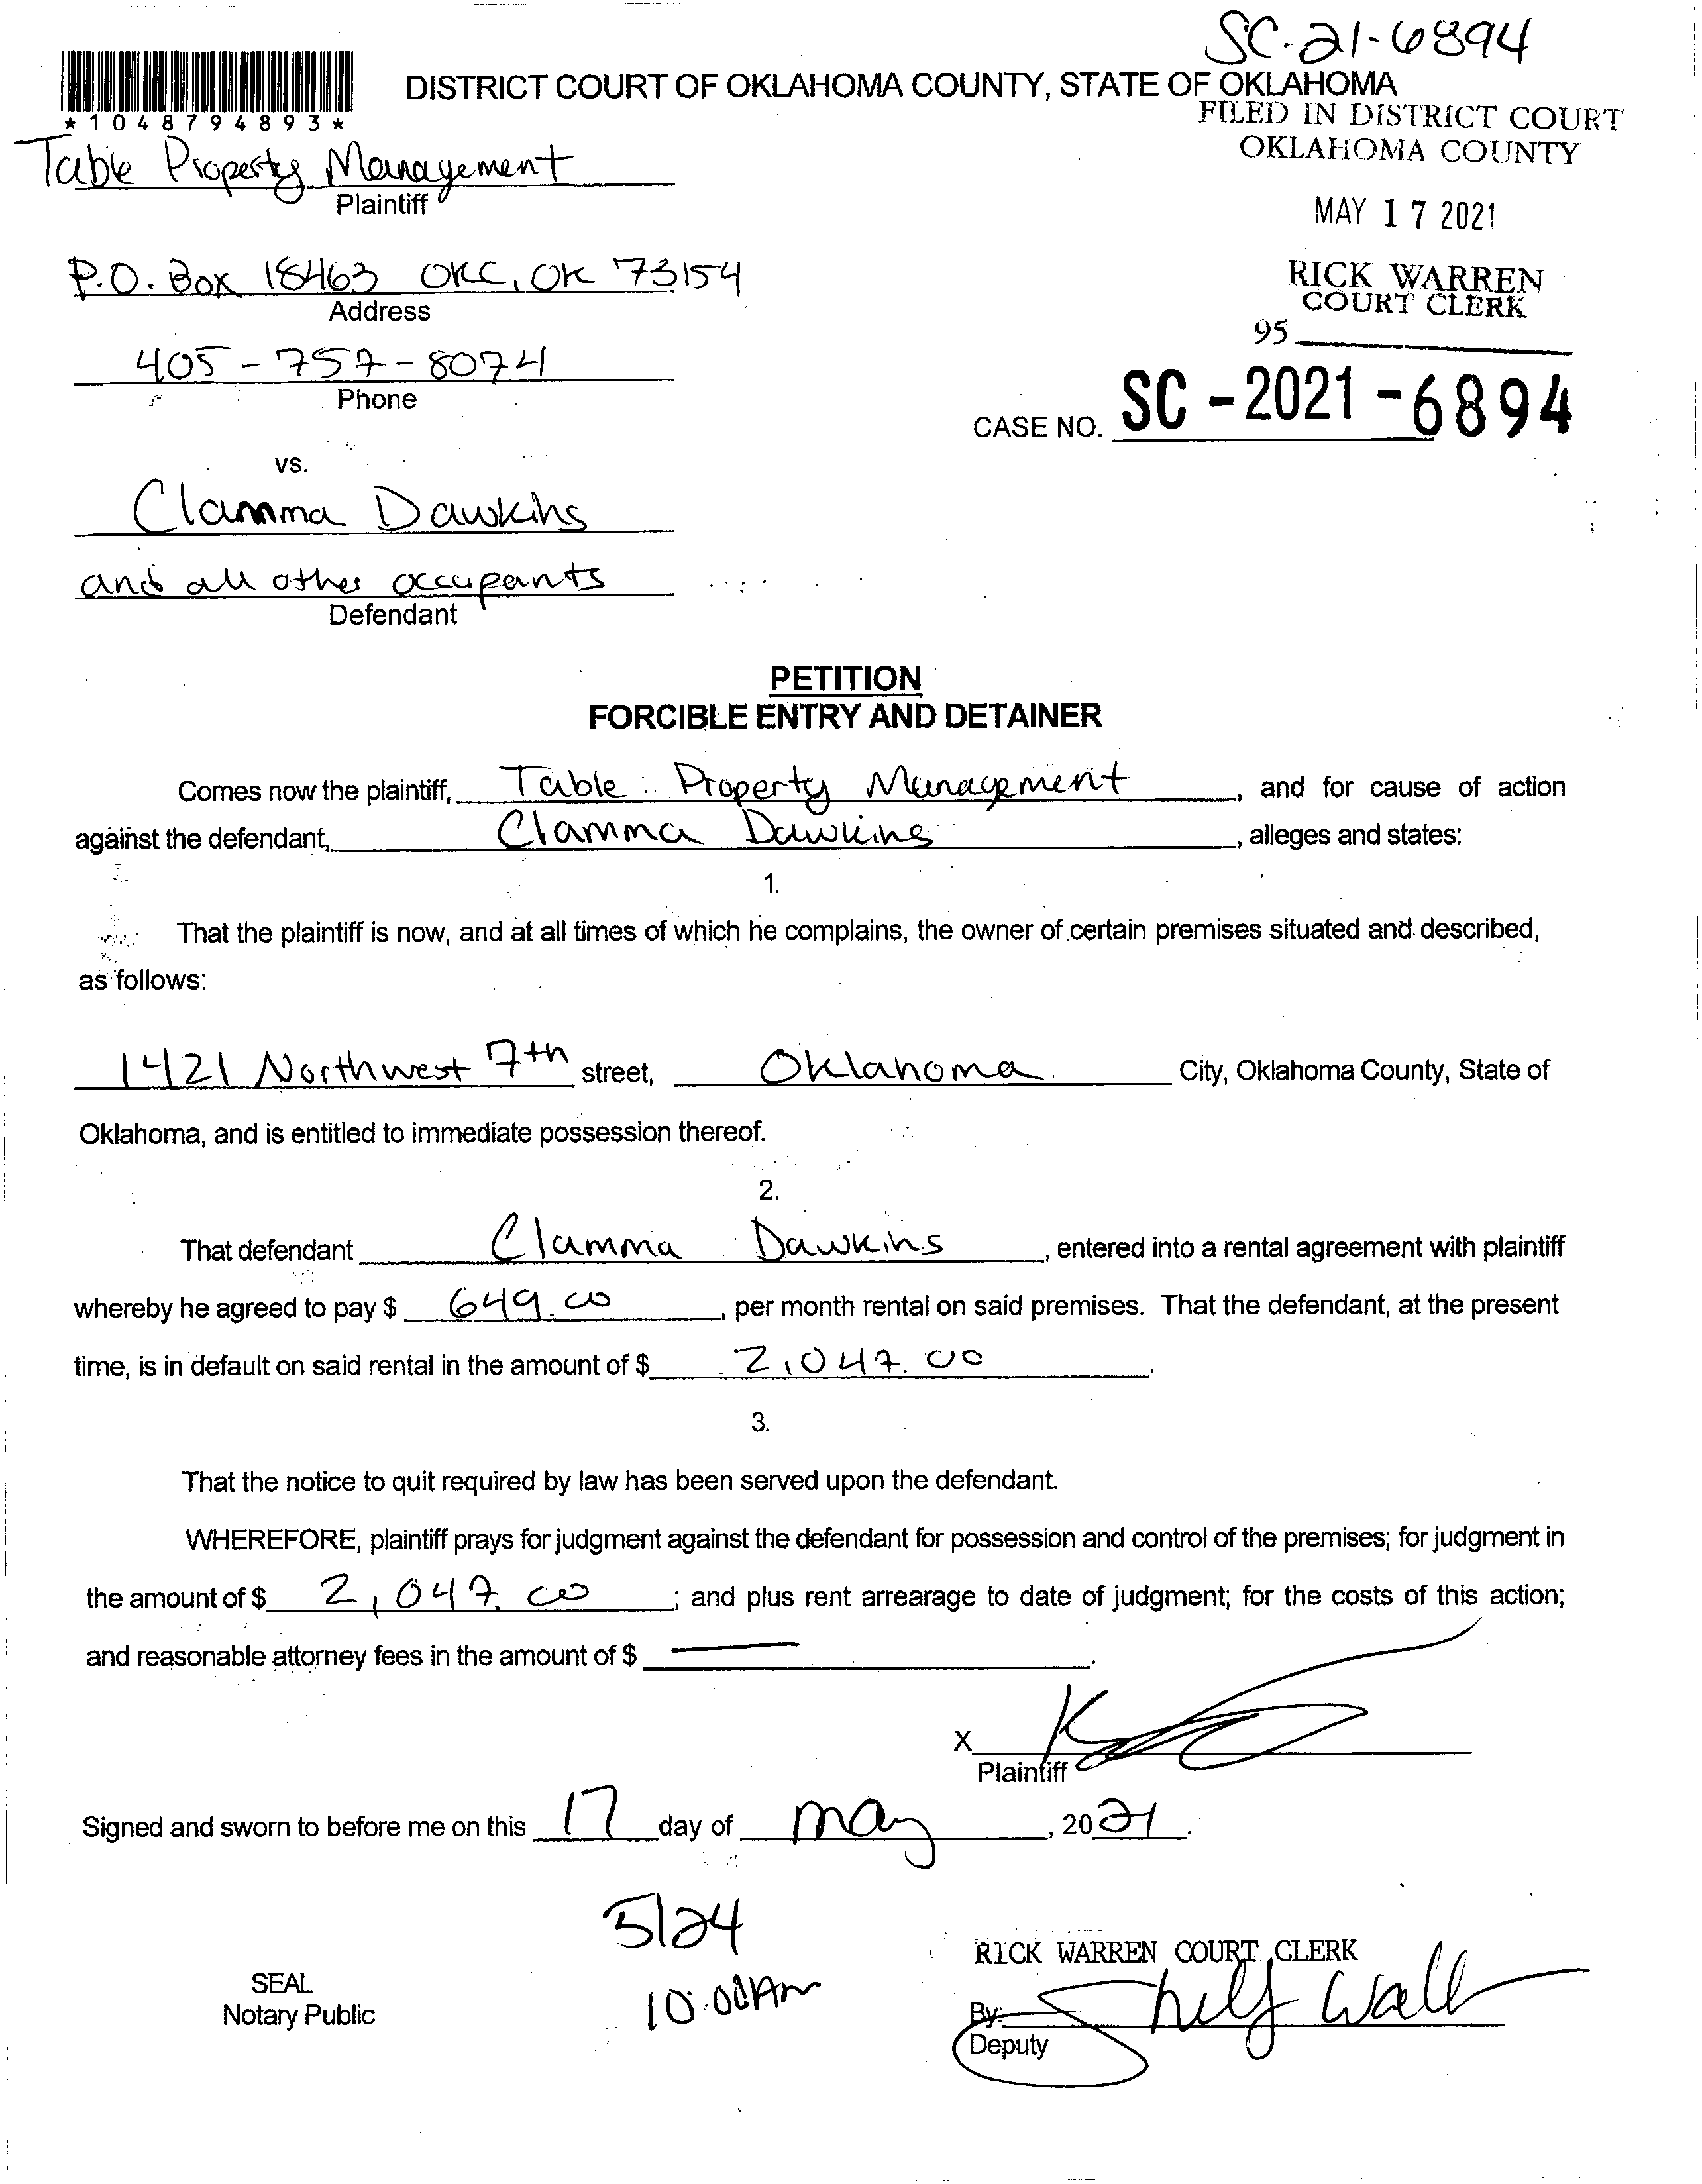 SC-21-6894
DISTRICT COURT OF OKLAHOMA COUNTY, STATE OF OKLAHOMA
*1048794893*
FILED IN DISTRICT COURT
OKLAHOMA COUNTY
Table Property Management
Plaintiff
MAY 17 2021
P.O. Box 18463 OKC, OK 73154
Address
RICK WARREN
COURT CLERK
95
405-757-8074
Phone
CASE NO. SC-2021-6894
vs.
Clamma Dawkins
and all other occupants
Defendant
PETITION
FORCIBLE ENTRY AND DETAINER
Comes now the plaintiff, Table Property Management, and for cause of action
against the defendant, Clamma Dawkins, alleges and states:
1.
That the plaintiff is now, and at all times of which he complains, the owner of certain premises situated and described,
as follows:
1421 Northwest 7th street, Oklahoma City, Oklahoma County, State of
Oklahoma, and is entitled to immediate possession thereof.
2.
That defendant Clamma Dawkins, entered into a rental agreement with plaintiff
whereby he agreed to pay $ 649.00, per month rental on said premises. That the defendant, at the present
time, is in default on said rental in the amount of $ 2,047.00.
3.
That the notice to quit required by law has been served upon the defendant.
WHEREFORE, plaintiff prays for judgment against the defendant for possession and control of the premises; for judgment in
the amount of $ 2,047.00; and plus rent arrearage to date of judgment; for the costs of this action;
and reasonable attorney fees in the amount of $ —.
X
Plaintiff
Signed and sworn to before me on this 17 day of May, 2021.
5/24
10:00AM
SEAL
Notary Public
RICK WARREN COURT CLERK
By:
Deputy